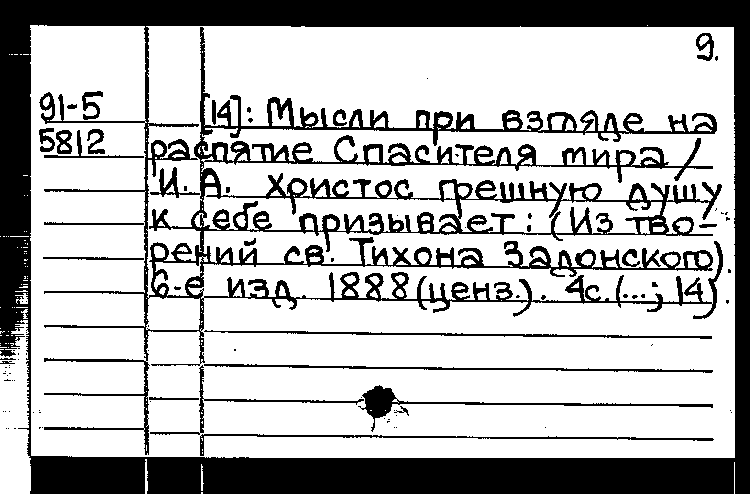 9.
91-5 [14]: Мысли при взгляде на
5812 распятие Спасителя мира /
И. А. Христос грешную душу
к себе призывает: (Из тво-
рений св. Тихона Задонского).
6-е изд. 1888 (ценз.). 4с. (...; 14).